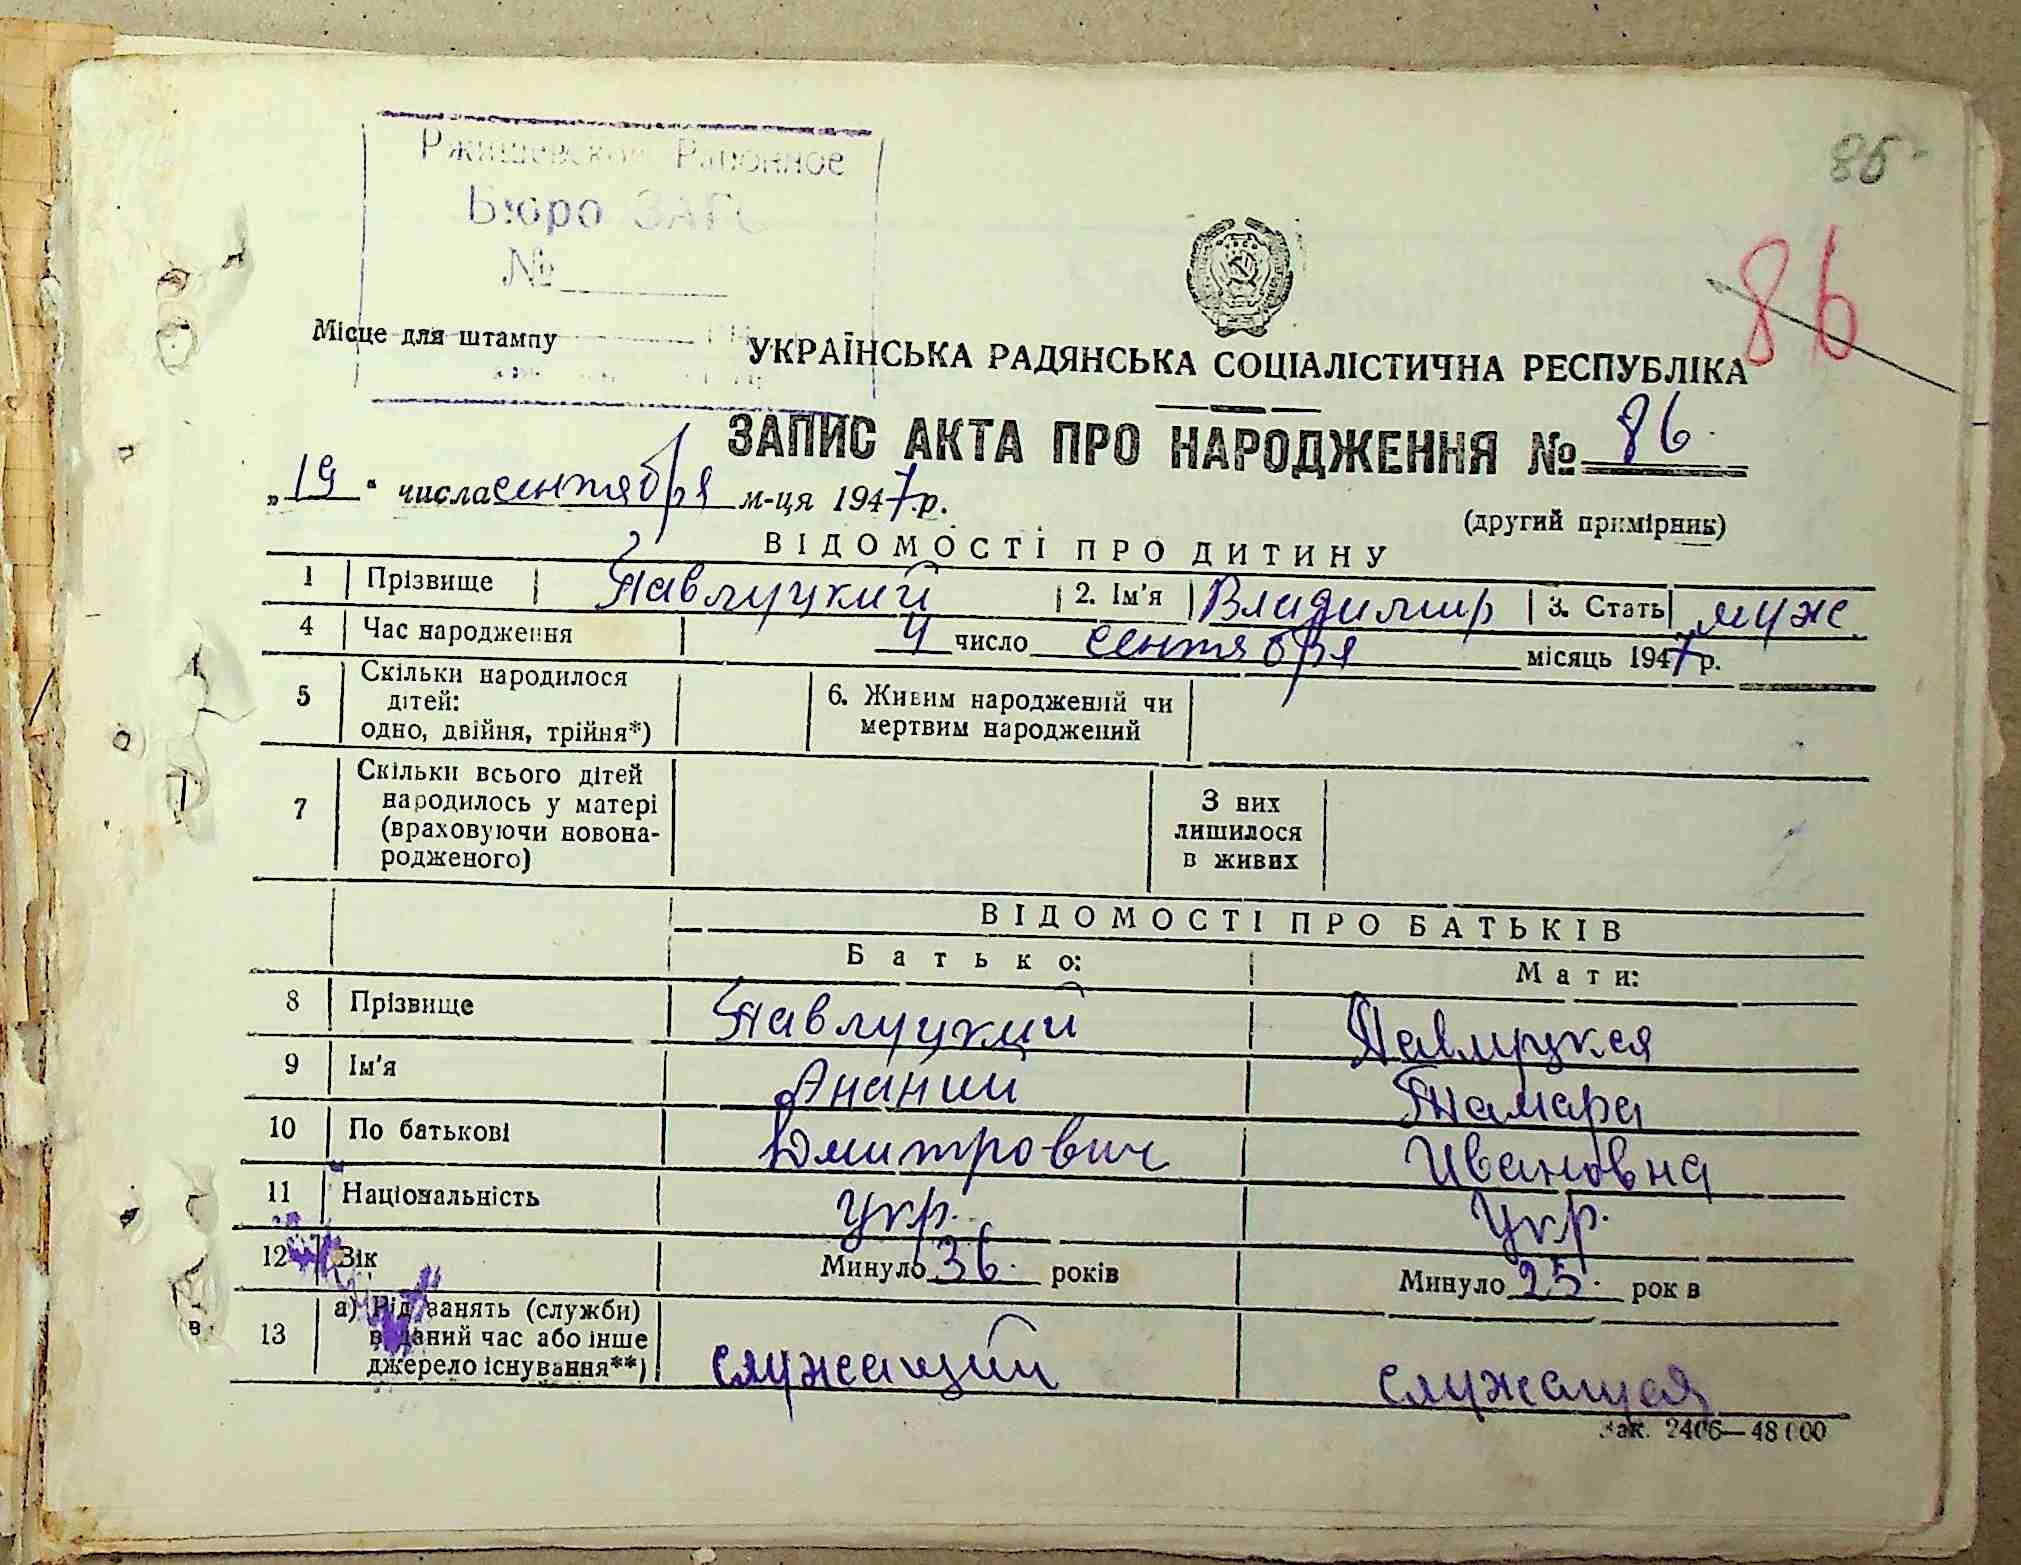 85
Ржищевское Районное
Бюро ЗАГС
№
86
Місце для штампу
УКРАЇНСЬКА РАДЯНСЬКА СОЦІАЛІСТИЧНА РЕСПУБЛІКА
ЗАПИС АКТА ПРО НАРОДЖЕННЯ № 86
„19“ числа сентября м-ця 1947 р.
(другий примірник)
ВІДОМОСТІ ПРО ДИТИНУ
1 Прізвище Павлуцкий 2. Ім'я Владимир 3. Стать муж.
4 Час народження 4 число сентября місяць 1947 р.
5 Скільки народилося
дітей:
одно, двійня, трійня*)
6. Живим народжений чи
мертвим народжений
7 Скільки всього дітей
народилось у матері
(враховуючи новона-
родженого)
З них
лишилося
в живих
ВІДОМОСТІ ПРО БАТЬКІВ
Батько: Мати:
8 Прізвище Павлуцкий Павлуцкая
9 Ім'я Ананий Тамара
10 По батькові Дмитрович Ивановна
11 Національність Укр. Укр.
12 Вік Минуло 36 років Минуло 25 років
13 а) Рід занять (служби)
в даний час або інше
джерело існування**)
служащий служащая
Зак. 2406—48 000